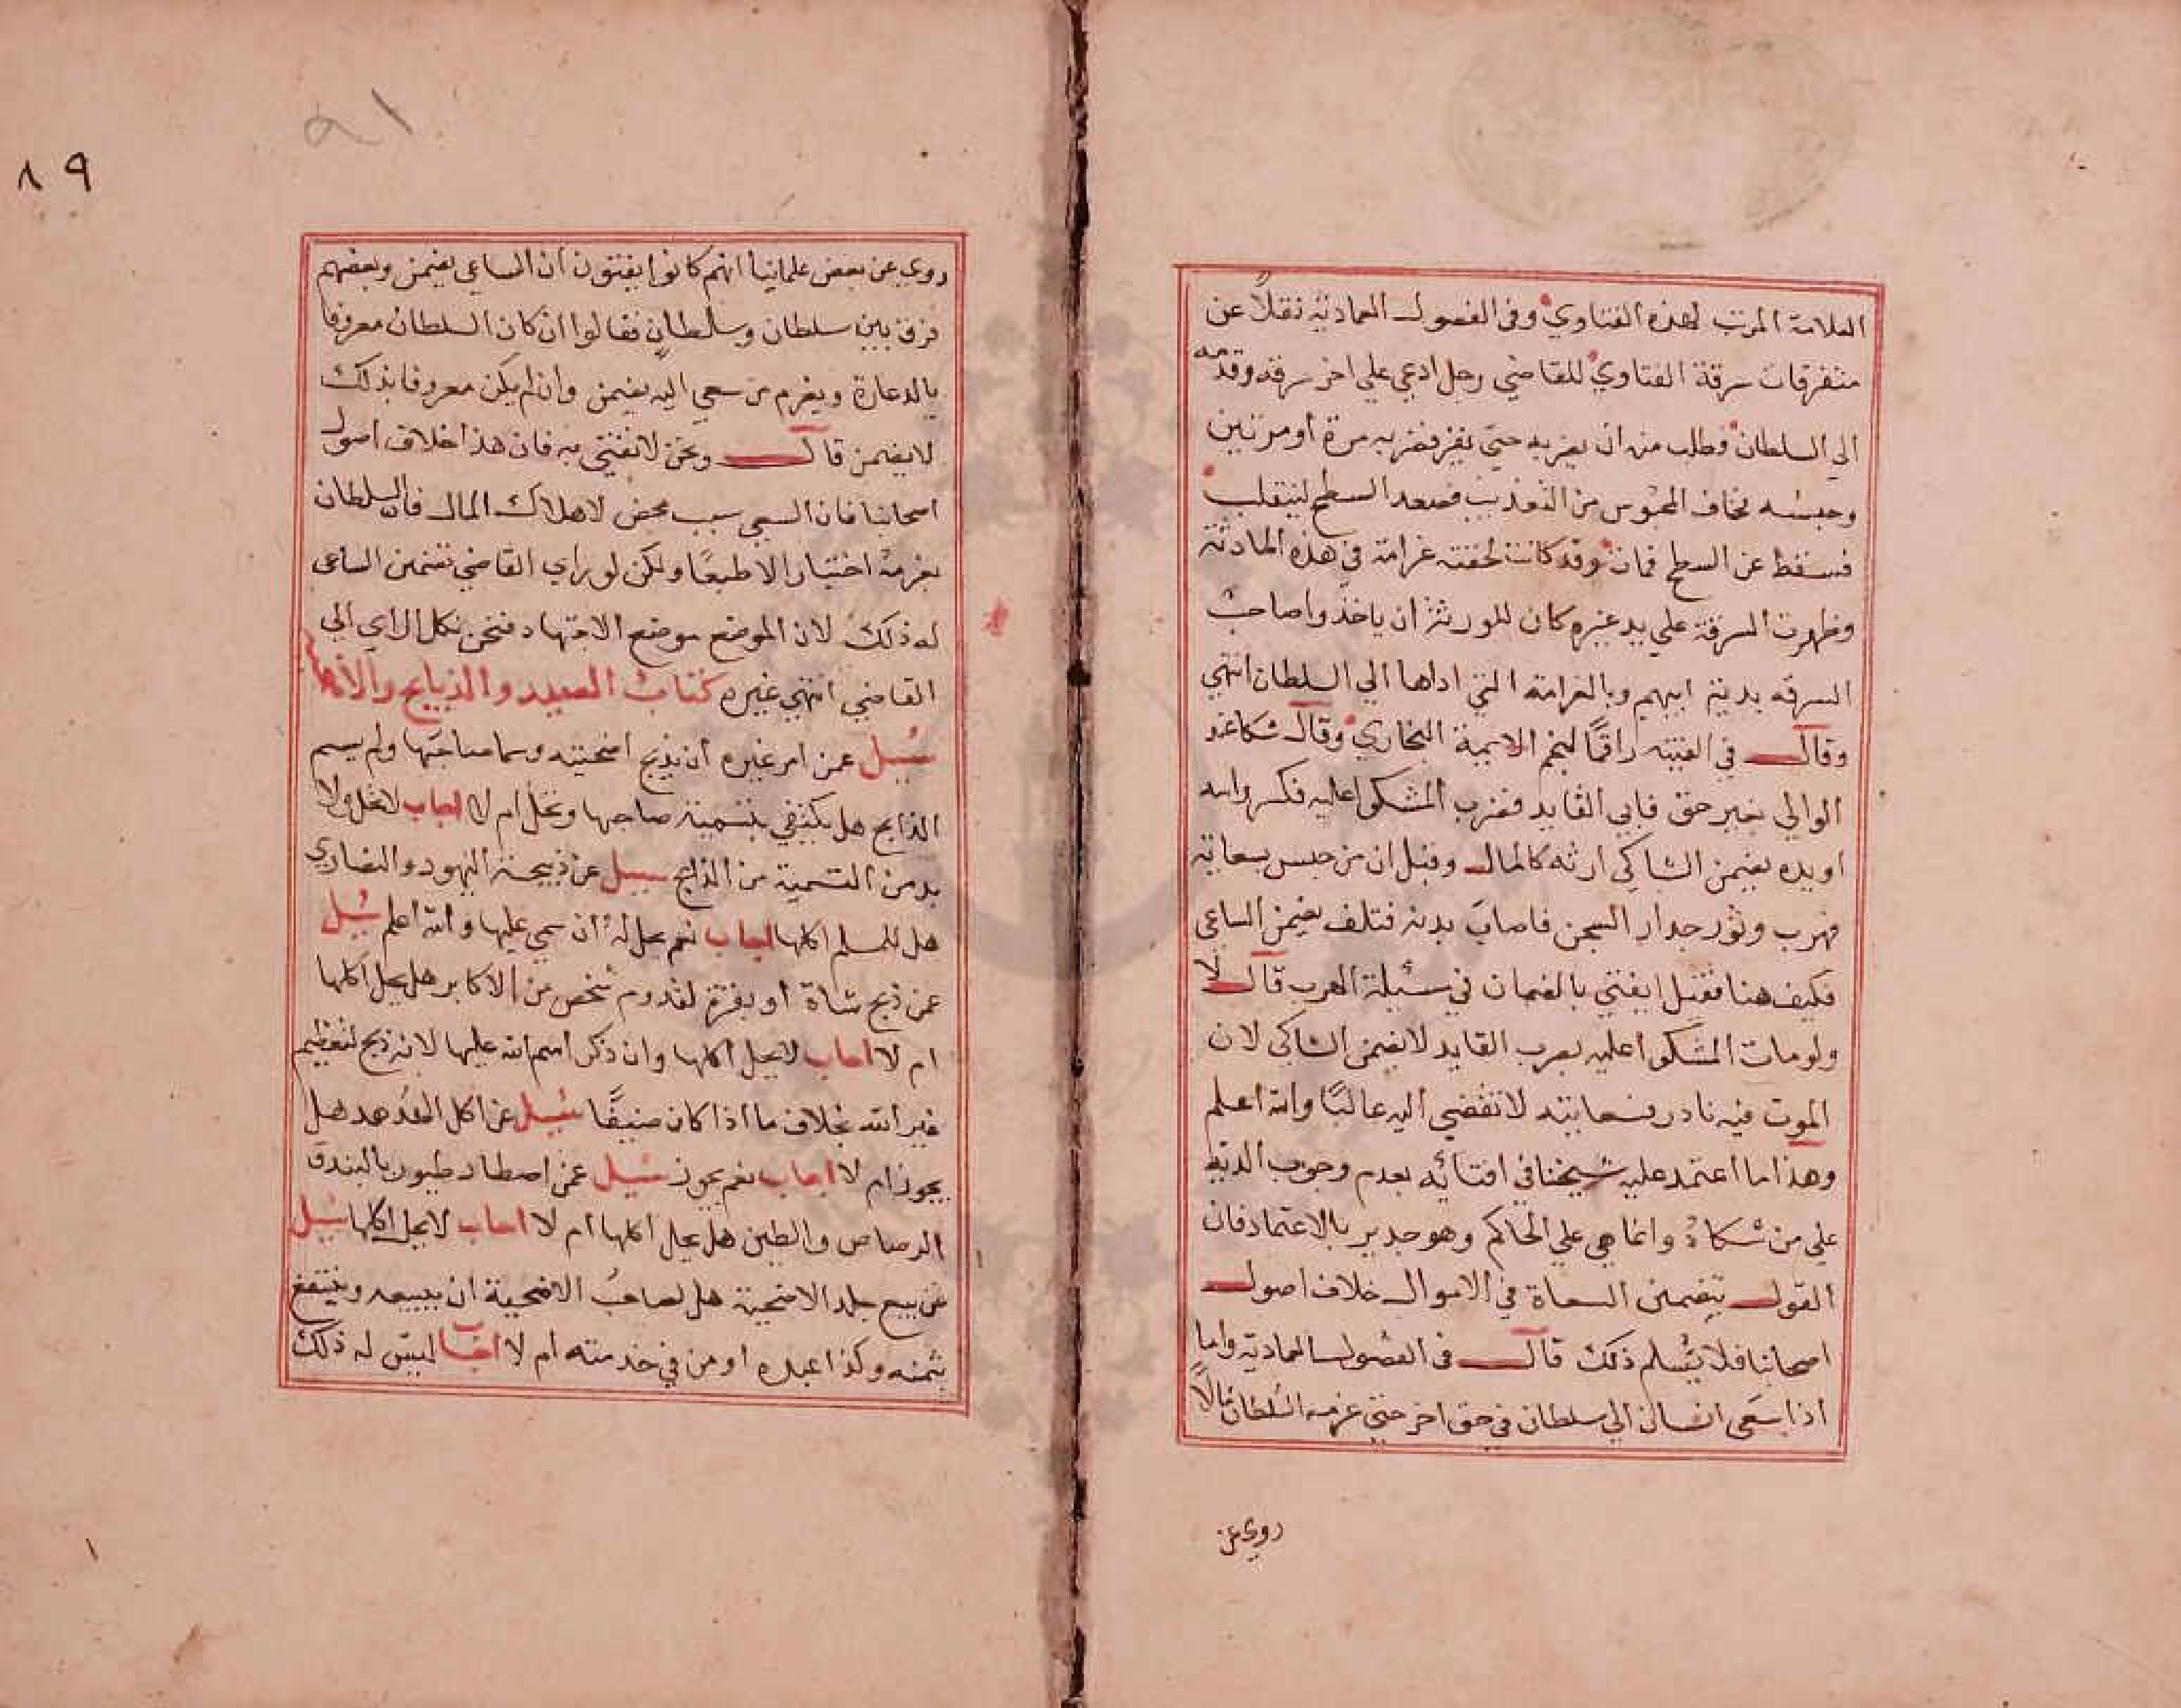 العلامة المرتب لهذه الفتاوي وفي الفصول العمادية نقلاً عن
متفرقات سرقة الفتاوي للقاضي رجل ادعي علي اخر سرقة وقدمه
الي السلطان وطلب منه ان يضربه حتي يقر فضربه مرة أو مرتين
وحبسه فخاف المحبوس من التعذيب فصعد السطح لينقلب
فسقط عن السطح فمات وقد كانت لحقته غرامة في هذه الحادثة
وظهرت السرقة علي يد غيره كان للورثة ان ياخذوا صاحب
السرقه بدية ابيهم وبالغرامة التي اداها الي السلطان انتهي
وقال في القنية راقمًا لنجم الايمة البخاري وقال شكا عند
الوالي بغير حق فاتي القايد فضرب المشكوا عليه فكسر سنه
اويده يضمن الشاكي ارشه كالمال وقيل ان من حبس بسعاية
فهرب وتور جدار السجن فاصاب بدنه فتلف يضمن الساعي
فكيف هنا فقيل ايفتي بالضمان في مسئلة الهرب قال لا
ولو مات المشكوا عليه بضرب القايد لا يضمن الشاكي لان
الموت فيه نادر فسعايته لا تفضي اليه غالبًا والله اعلم
وهذا ما اعتمد عليه شيخنا في افتائه بعدم وجوب الدية
علي من شكاه وانما هي علي الحاكم وهو جدير بالاعتماد فان
القول بتضمين السعاة في الاموال خلاف اصول
اصحابنا فلا يسلم ذلك قال في الفصول العمادية واما
اذا سعي انسان الي سلطان في حق اخر حتي غرمه السلطان مالًا
روي عن
٨٩
٨١
روي عن بعض علمائنا انهم كانوا يفتون ان الساعي يضمن وبعضهم
فرق بين سلطان وسلطان فقالوا ان كان السلطان معروفا
بالدعارة ويغرم من سعي اليه يضمن وان لم يكن معروفا بذلك
لا يضمن قال ونحن لا نفتي به فان هذا خلاف اصول
اصحابنا فان السعي سبب محض لاهلاك المال فان السلطان
يغرمه اختيارا لا طبعًا ولكن لو راي القاضي تضمين الساعي
له ذلك لان الموضع موضع الاجتهاد فنحن نكل الراي الي
القاضي انتهي غيره كتاب الصيد والذبايح والأضا
سُيل عمن امر غيره أن يذبح اضحيته وسما صاحبها ولم يسم
الذابح هل يكتفي بتسمية صاحبها وتحل ام لا اجاب لا تحل ولا
بد من التسمية من الذابح سيل عن ذبيحة اليهود والنصاري
هل للمسلم اكلها اجاب نعم يحل له ان سمي عليها والله اعلم سُيل
عن ذبح شاة أو بقرة لقدوم شخص من الاكابر هل يحل اكلها
ام لا اجاب لا يحل اكلها وان ذكر اسم الله عليها لانه ذبح لتعظيم
غير الله بخلاف ما اذا كان ضيفًا سُيل عن اكل الهدهد هل
يجوز ام لا اجاب نعم يجوز سُيل عمن اصطاد طيور بالبندق
الرصاص والطين هل يحل اكلها ام لا اجاب لا يحل اكلها سُيل
عن بيع جلد الاضحية هل لصاحب الاضحية ان يبيعه وينتفع
بثمنه وكذا عبده او من في خدمته ام لا اجاب ليس له ذلك